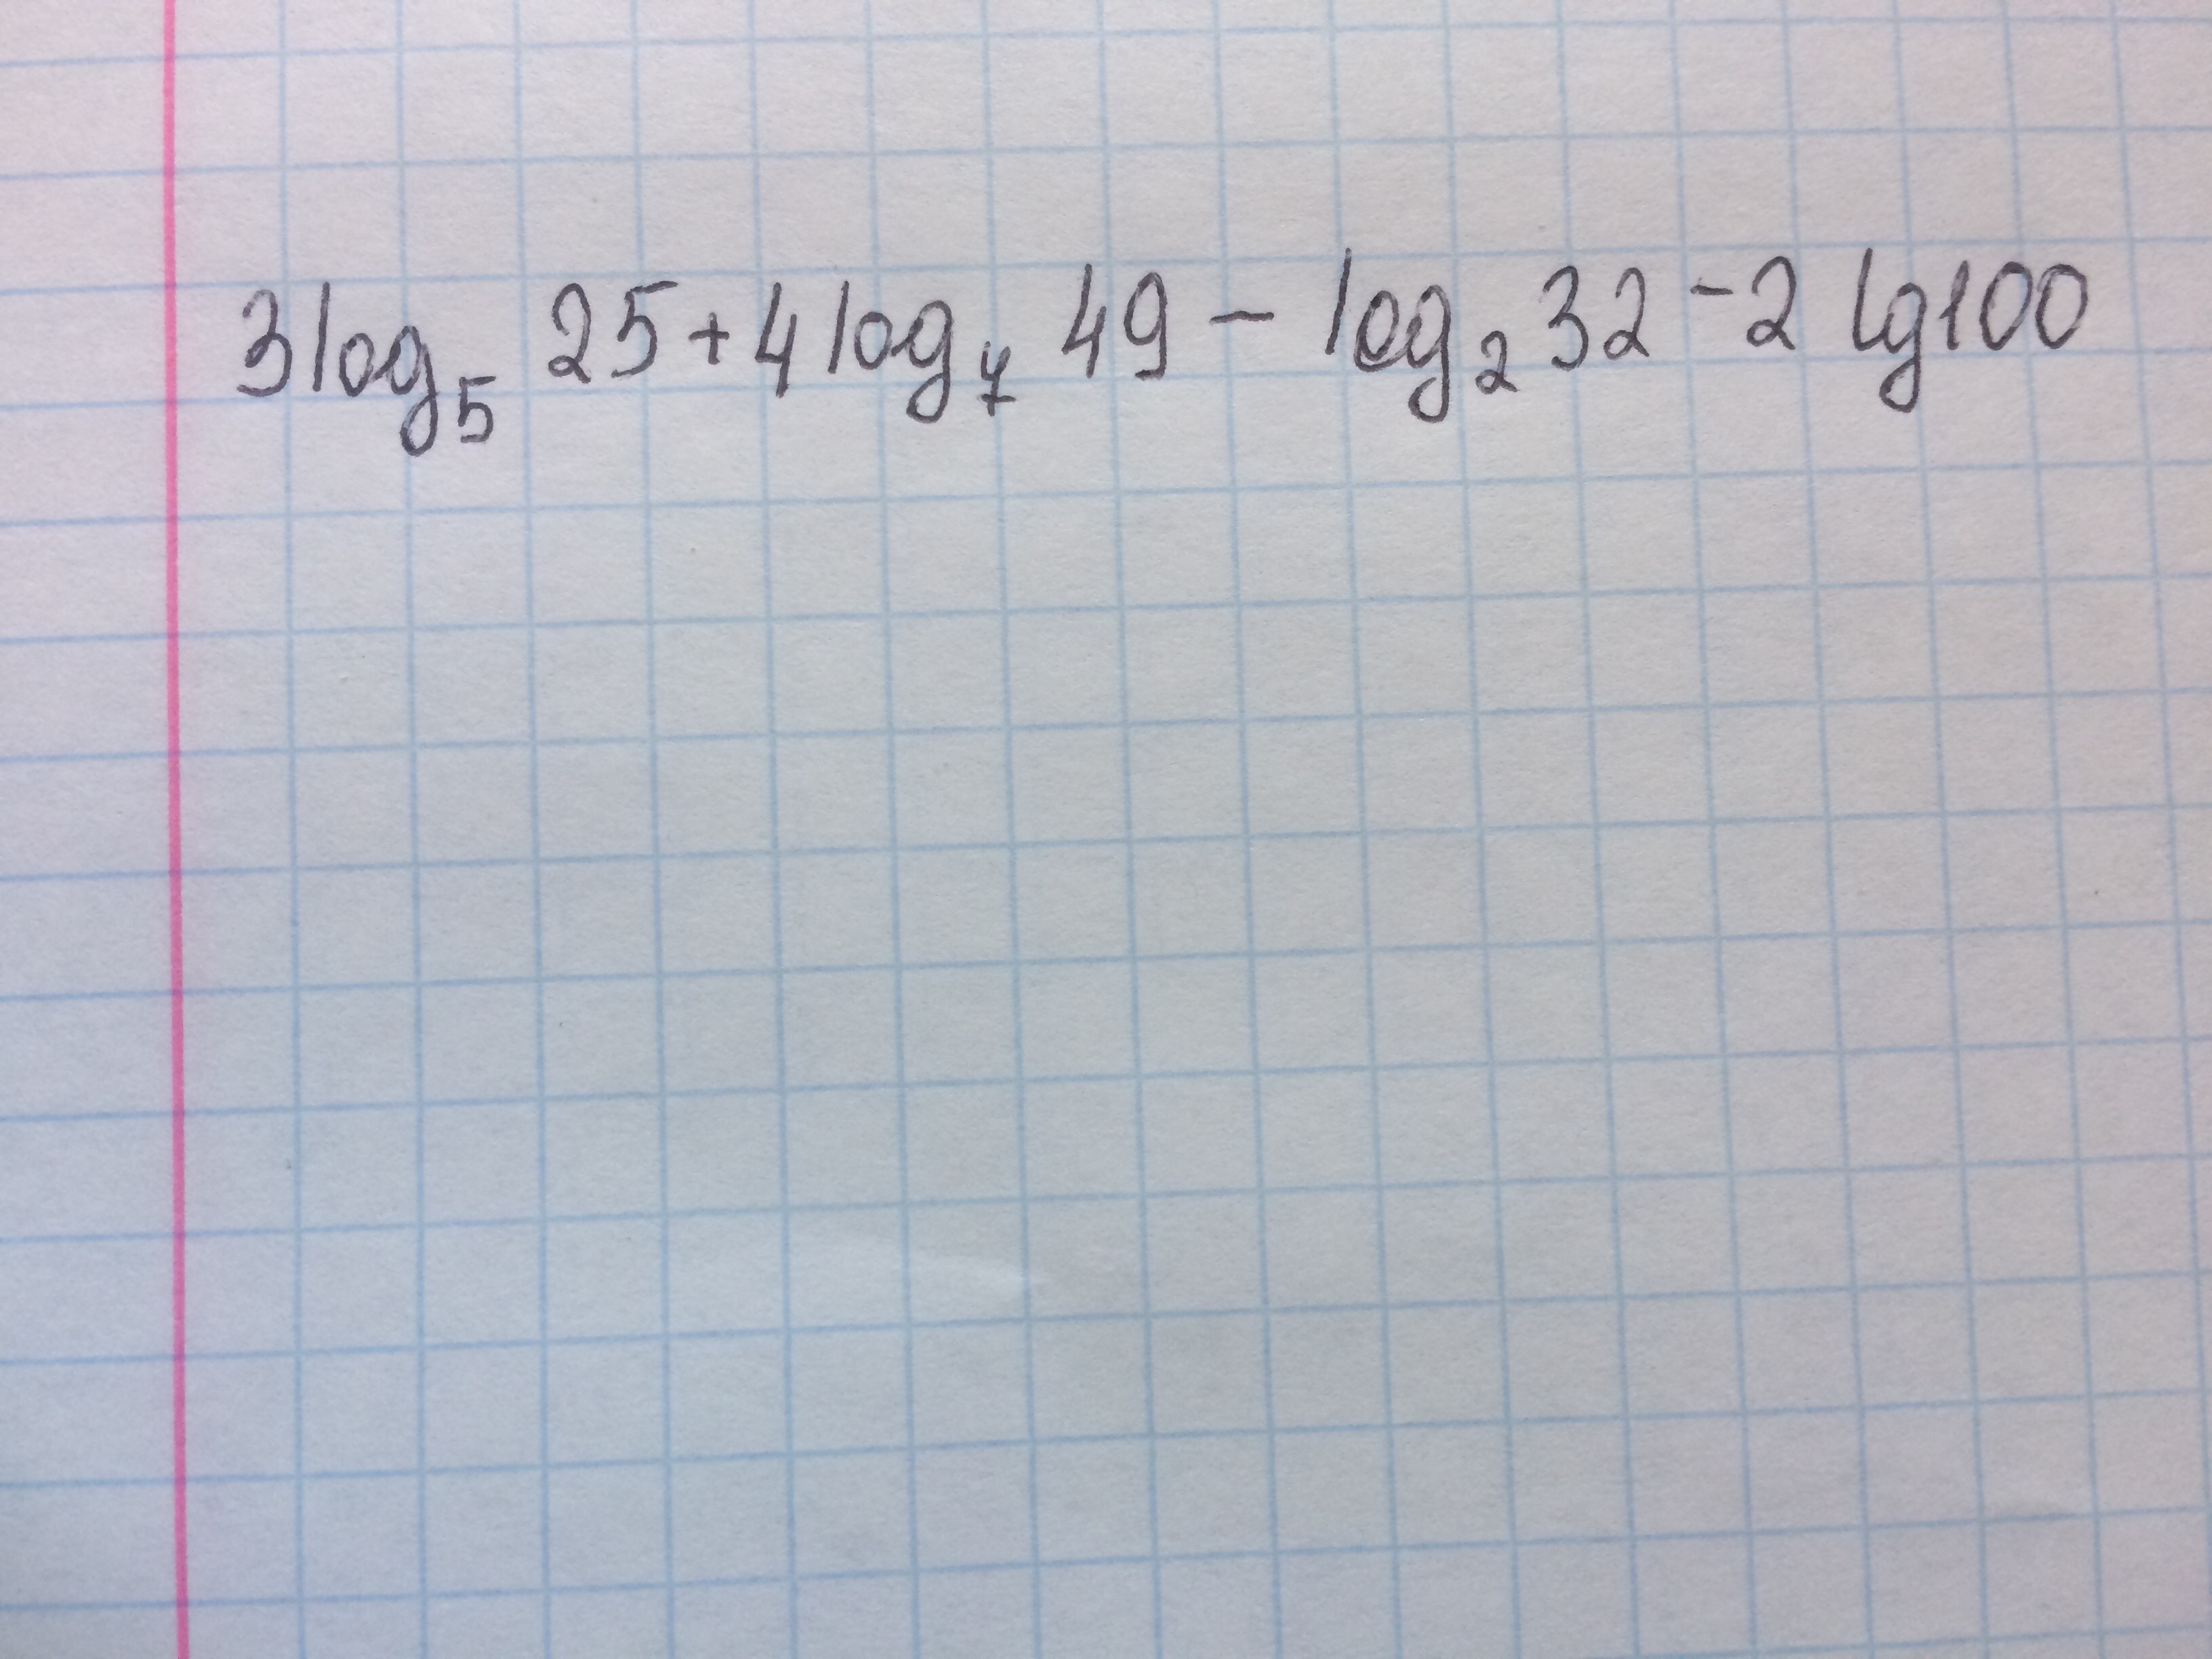 3log₅ 25+4log₇ 49 - log₂ 32 - 2 lg100